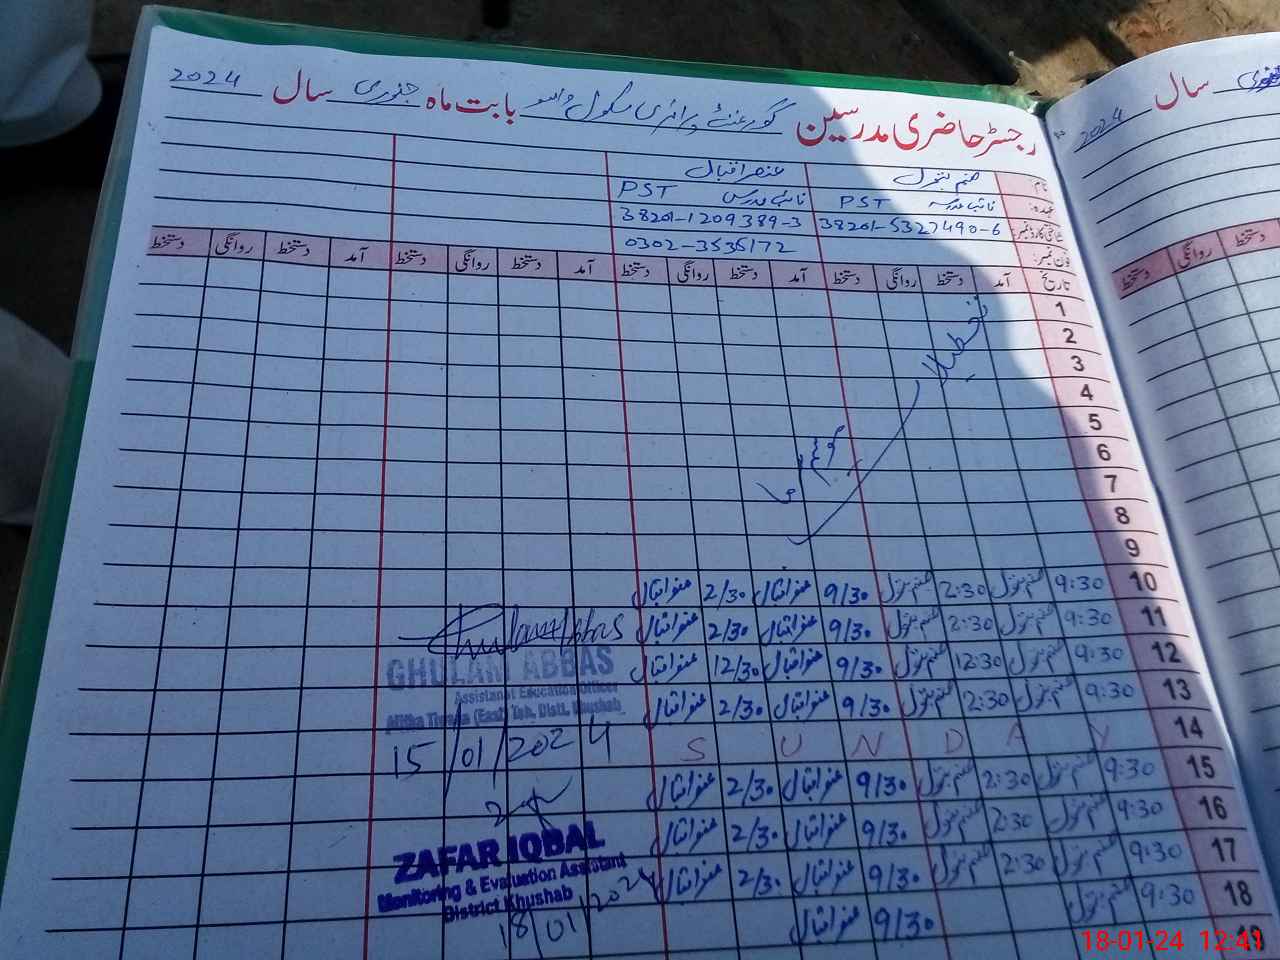 رجسٹر حاضری مدرسین گورنمنٹ پرائمری سکول بابت ماہ جنوری سال 2024
نام: صنم بتول عنصر اقبال
عہدہ: نائب مدرسہ PST نائب مدرس PST
38201-5327490-6 38201-1209389-3
فون نمبر: 0302-3535172
تاریخ آمد دستخط روانگی دستخط آمد دستخط روانگی دستخط آمد دستخط روانگی دستخط آمد دستخط روانگی دستخط
1
2
3
4
5
6
7
8
9
تعطیلات
موسم
10 9:30 صنم بتول 2:30 صنم بتول 9/30 عنصر اقبال 2/30 عنصر اقبال
11 9:30 صنم بتول 2:30 صنم بتول 9/30 عنصر اقبال 2/30 عنصر اقبال
12 9:30 صنم بتول 12:30 صنم بتول 9/30 عنصر اقبال 12/30 عنصر اقبال
13 9:30 صنم بتول 2:30 صنم بتول 9/30 عنصر اقبال 2/30 عنصر اقبال
14 S U N D A Y
15 9:30 صنم بتول 2:30 صنم بتول 9/30 عنصر اقبال 2/30 عنصر اقبال
16 9:30 صنم بتول 2:30 صنم بتول 9/30 عنصر اقبال 2/30 عنصر اقبال
17 9:30 صنم بتول 2:30 صنم بتول 9/30 عنصر اقبال 2/30 عنصر اقبال
18 9:30 صنم بتول 9/30 عنصر اقبال
19
Ghulam Abbas
GHULAM ABBAS
Assistant Education Officer
Mitha Tiwana (East) Teh, Distt. Khushab
15/01/2024
ZAFAR IQBAL
Monitoring & Evaluation Assistant
District Khushab
18/01/2024
سال 2024
دستخط روانگی دستخط
18-01-24 12:41